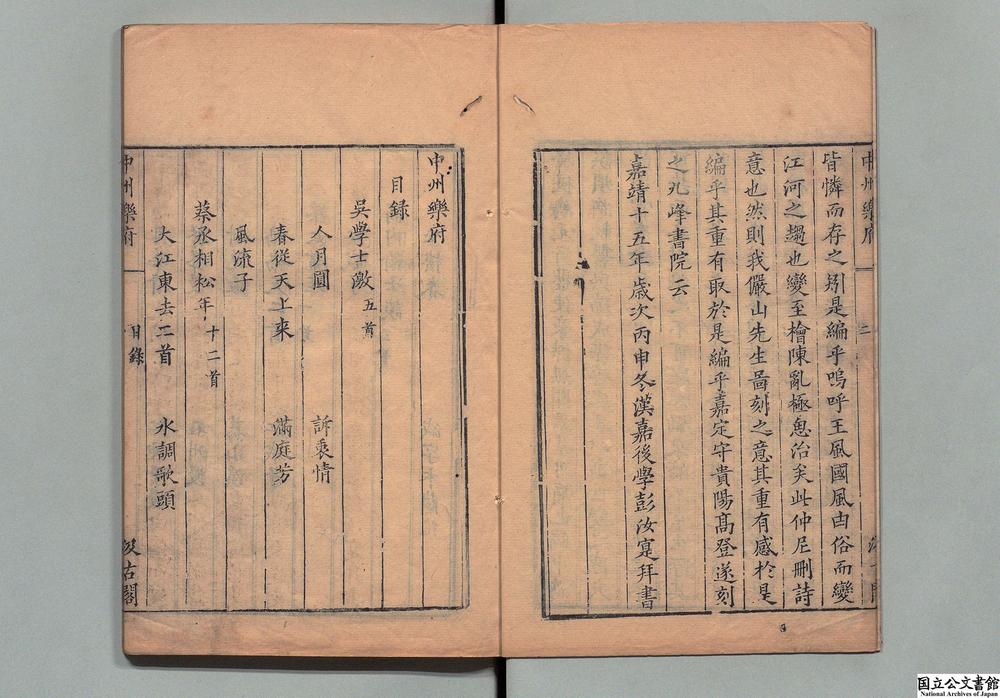 中州樂府
二
皆憐而存之矧是編乎嗚呼王風國風由俗而變
江河之趨也變至檜陳亂極思治矣此仲尼刪詩
意也然則我儼山先生啚刻之意其重有感於是
編乎其重有取於是編乎嘉定守貴陽髙登遂刻
之九峰書院云
嘉靖十五年歲次丙申冬漢嘉後學彭汝寔拜書
中州樂府
目録
吳學士激 五首
人月圓 訴衷情
春從天上来 滿庭芳
風流子
蔡丞相松年 十二首
大江東去二首 水調歌頭
中州樂府 目錄 汲古閣
国立公文書館
National Archives of Japan